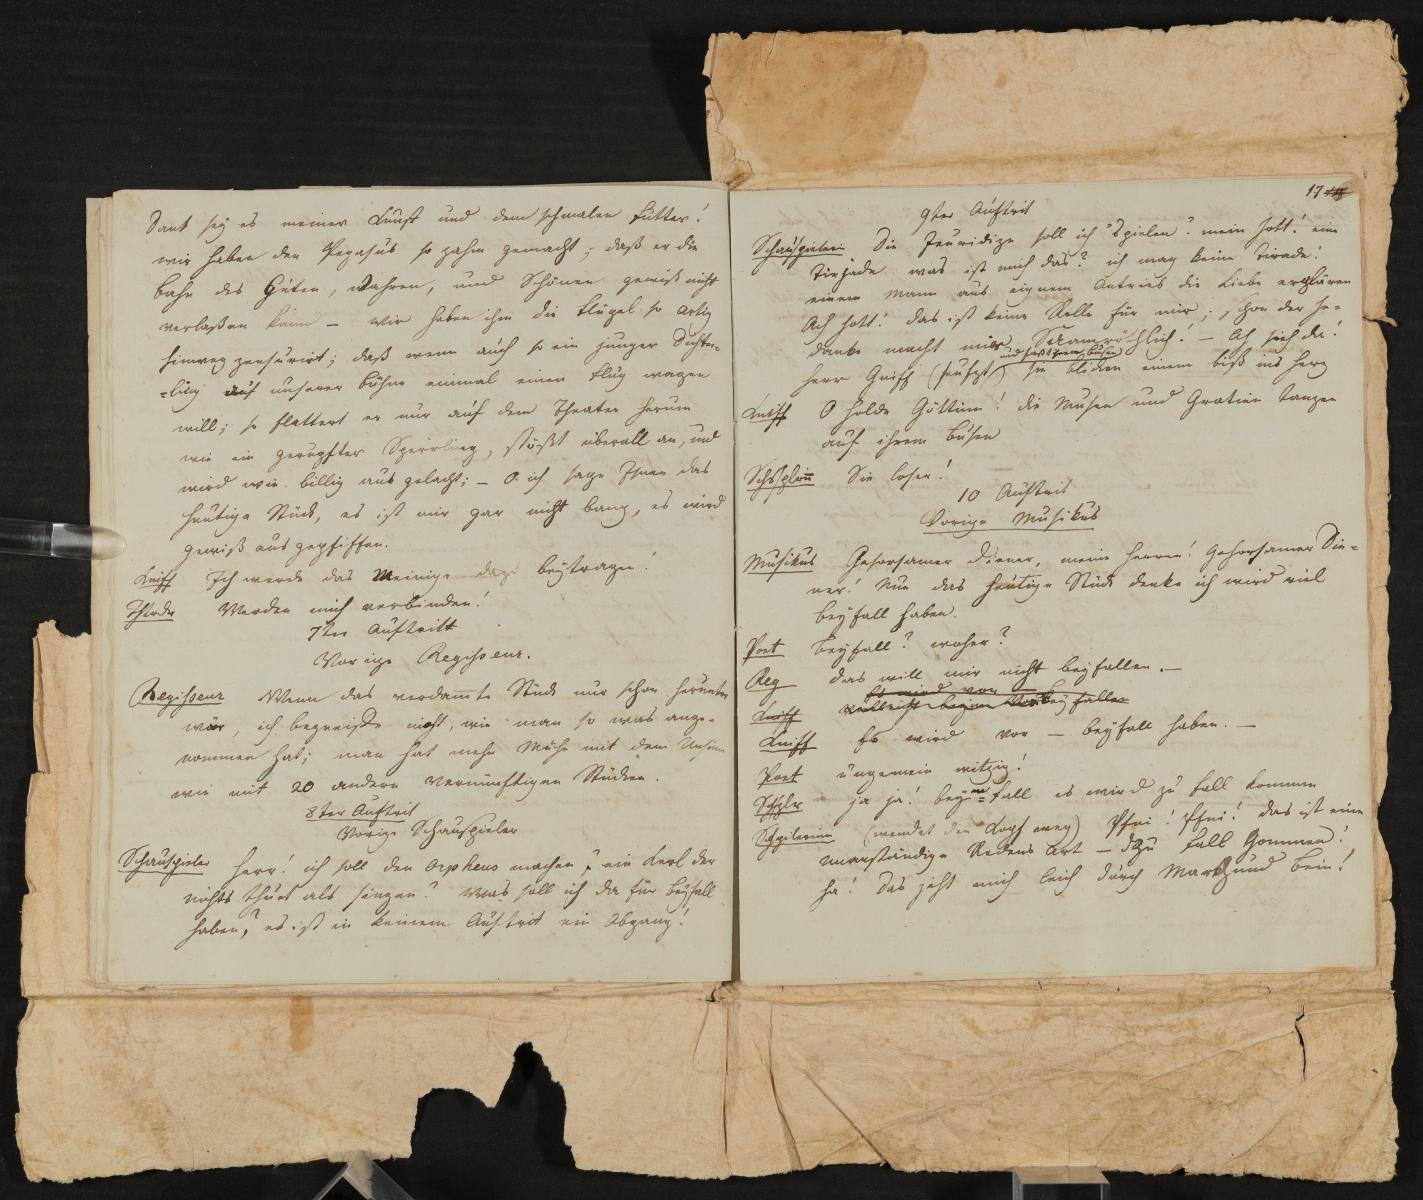 Dank sey es meiner Kunst und dem schmalen Futter!
wir haben den Pegasus so zahm gemacht; daß er die
Bahn des Guten, Wahren, und Schönen gewiß nicht
verlaßen kann – wir haben ihm die Flügel so artig
hinweg zensurirt; daß wenn auch so ein junger Dichter-
=ling auf unserer Bühne einmal einen Flug wagen
will; so flattert er nur auf dem Theater herum
wie ein gerupfter Sperrling, stößt überall an, und
wird wie billig aus gelacht; – O ich sage Ihnen das
heutige Stück, es ist mir gar nicht bang, es wird
gewiß aus gepfiffen.
Kniff Ich werde das Meinige dazu beytragen!
Werden mich verbinden!
7ter Auftritt
Vorige Regisseur.
Regisseur Wenn das verdammte Stück nur schon herunter
wär, ich begreife nicht, wie man so was ange-
nommen hat; man hat mehr Mühe mit dem Unsinn
wie mit 20 andern vernünftigen Stücken.
8ter Auftrit
Vorige Schauspieler
Schauspieler Herr! ich soll den Orpheus machen, ein Kerl der
nichts thut als singen? Was soll ich da für Beyfall
haben, es ist in keinem Auftrit ein Abgang!
17
9ter Auftrit
Schauspielerin Die Jeuridize soll ich spielen? mein Jott! eine
Tirjade was ist mich das? ich mag keine Tirade!
einem Mann aus eignem Antrieb die Liebe erklären
Ach Jott! das ist keine Rolle für mir; schon der Je-
danke macht mir Schamröthlich! – Ach sieh da!
und faßt ihren Busen
Herr Gniff (seufzt) Sie blicken einem biß ins Herz
Kniff O holde Göttinn! die Musen und Gratien tanzen
auf ihrem Busen
Sie loser!
10 Auftrit
Vorige Musikus
Musikus Gehorsamer Diener, meine Herren! Gehorsamer Die=
ner! Nun das heutige Stück denke ich wird viel
Beyfall haben.
Poet Beyfall? woher?
Reg das will mir nicht beyfallen. –
Es wird vor
Kniff vielleicht beym
Kniff Es wird vor – beyfall haben. –
Poet ungemein witzig!
Schsplr ja ja! beynah fall es wird zu fall kommen
Schspilerinn (wendet den Kopf weg) Pfui! Pfui! das ist eine
unanständige Redens art – zu fall Kommen!
ha! das jeht mich leich dorch Mark und Bein!